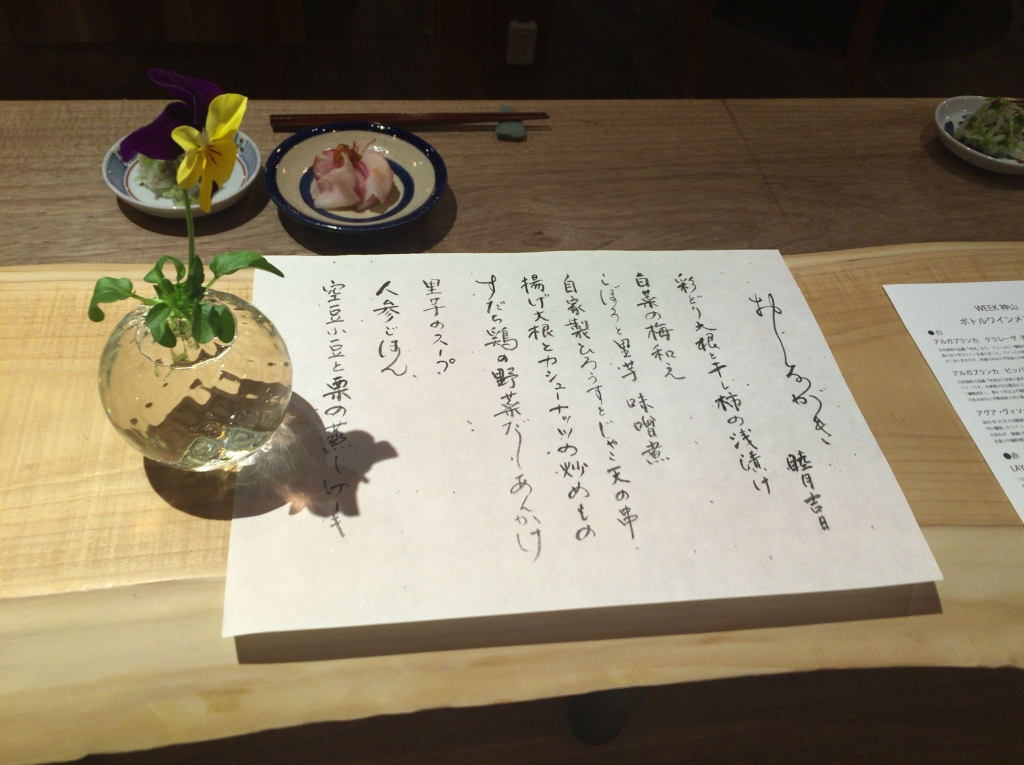 おしながき 睦月吉日
彩どり大根と干し柿の浅漬け
白菜の梅和え
ごぼうと里芋 味噌煮
自家製ひろうすとじゃこ天の串
揚げ大根とカシューナッツの炒めもの
すだち鶏の野菜だしあんかけ
里芋のスープ
人参ごはん
空豆小豆と栗の蒸しケーキ
WEEK 神山
ボトルワインメ
●白
アルガブランカ クラレーザ
アルガブランカ ピッパ
アグア・ヴィン
●赤
LAY